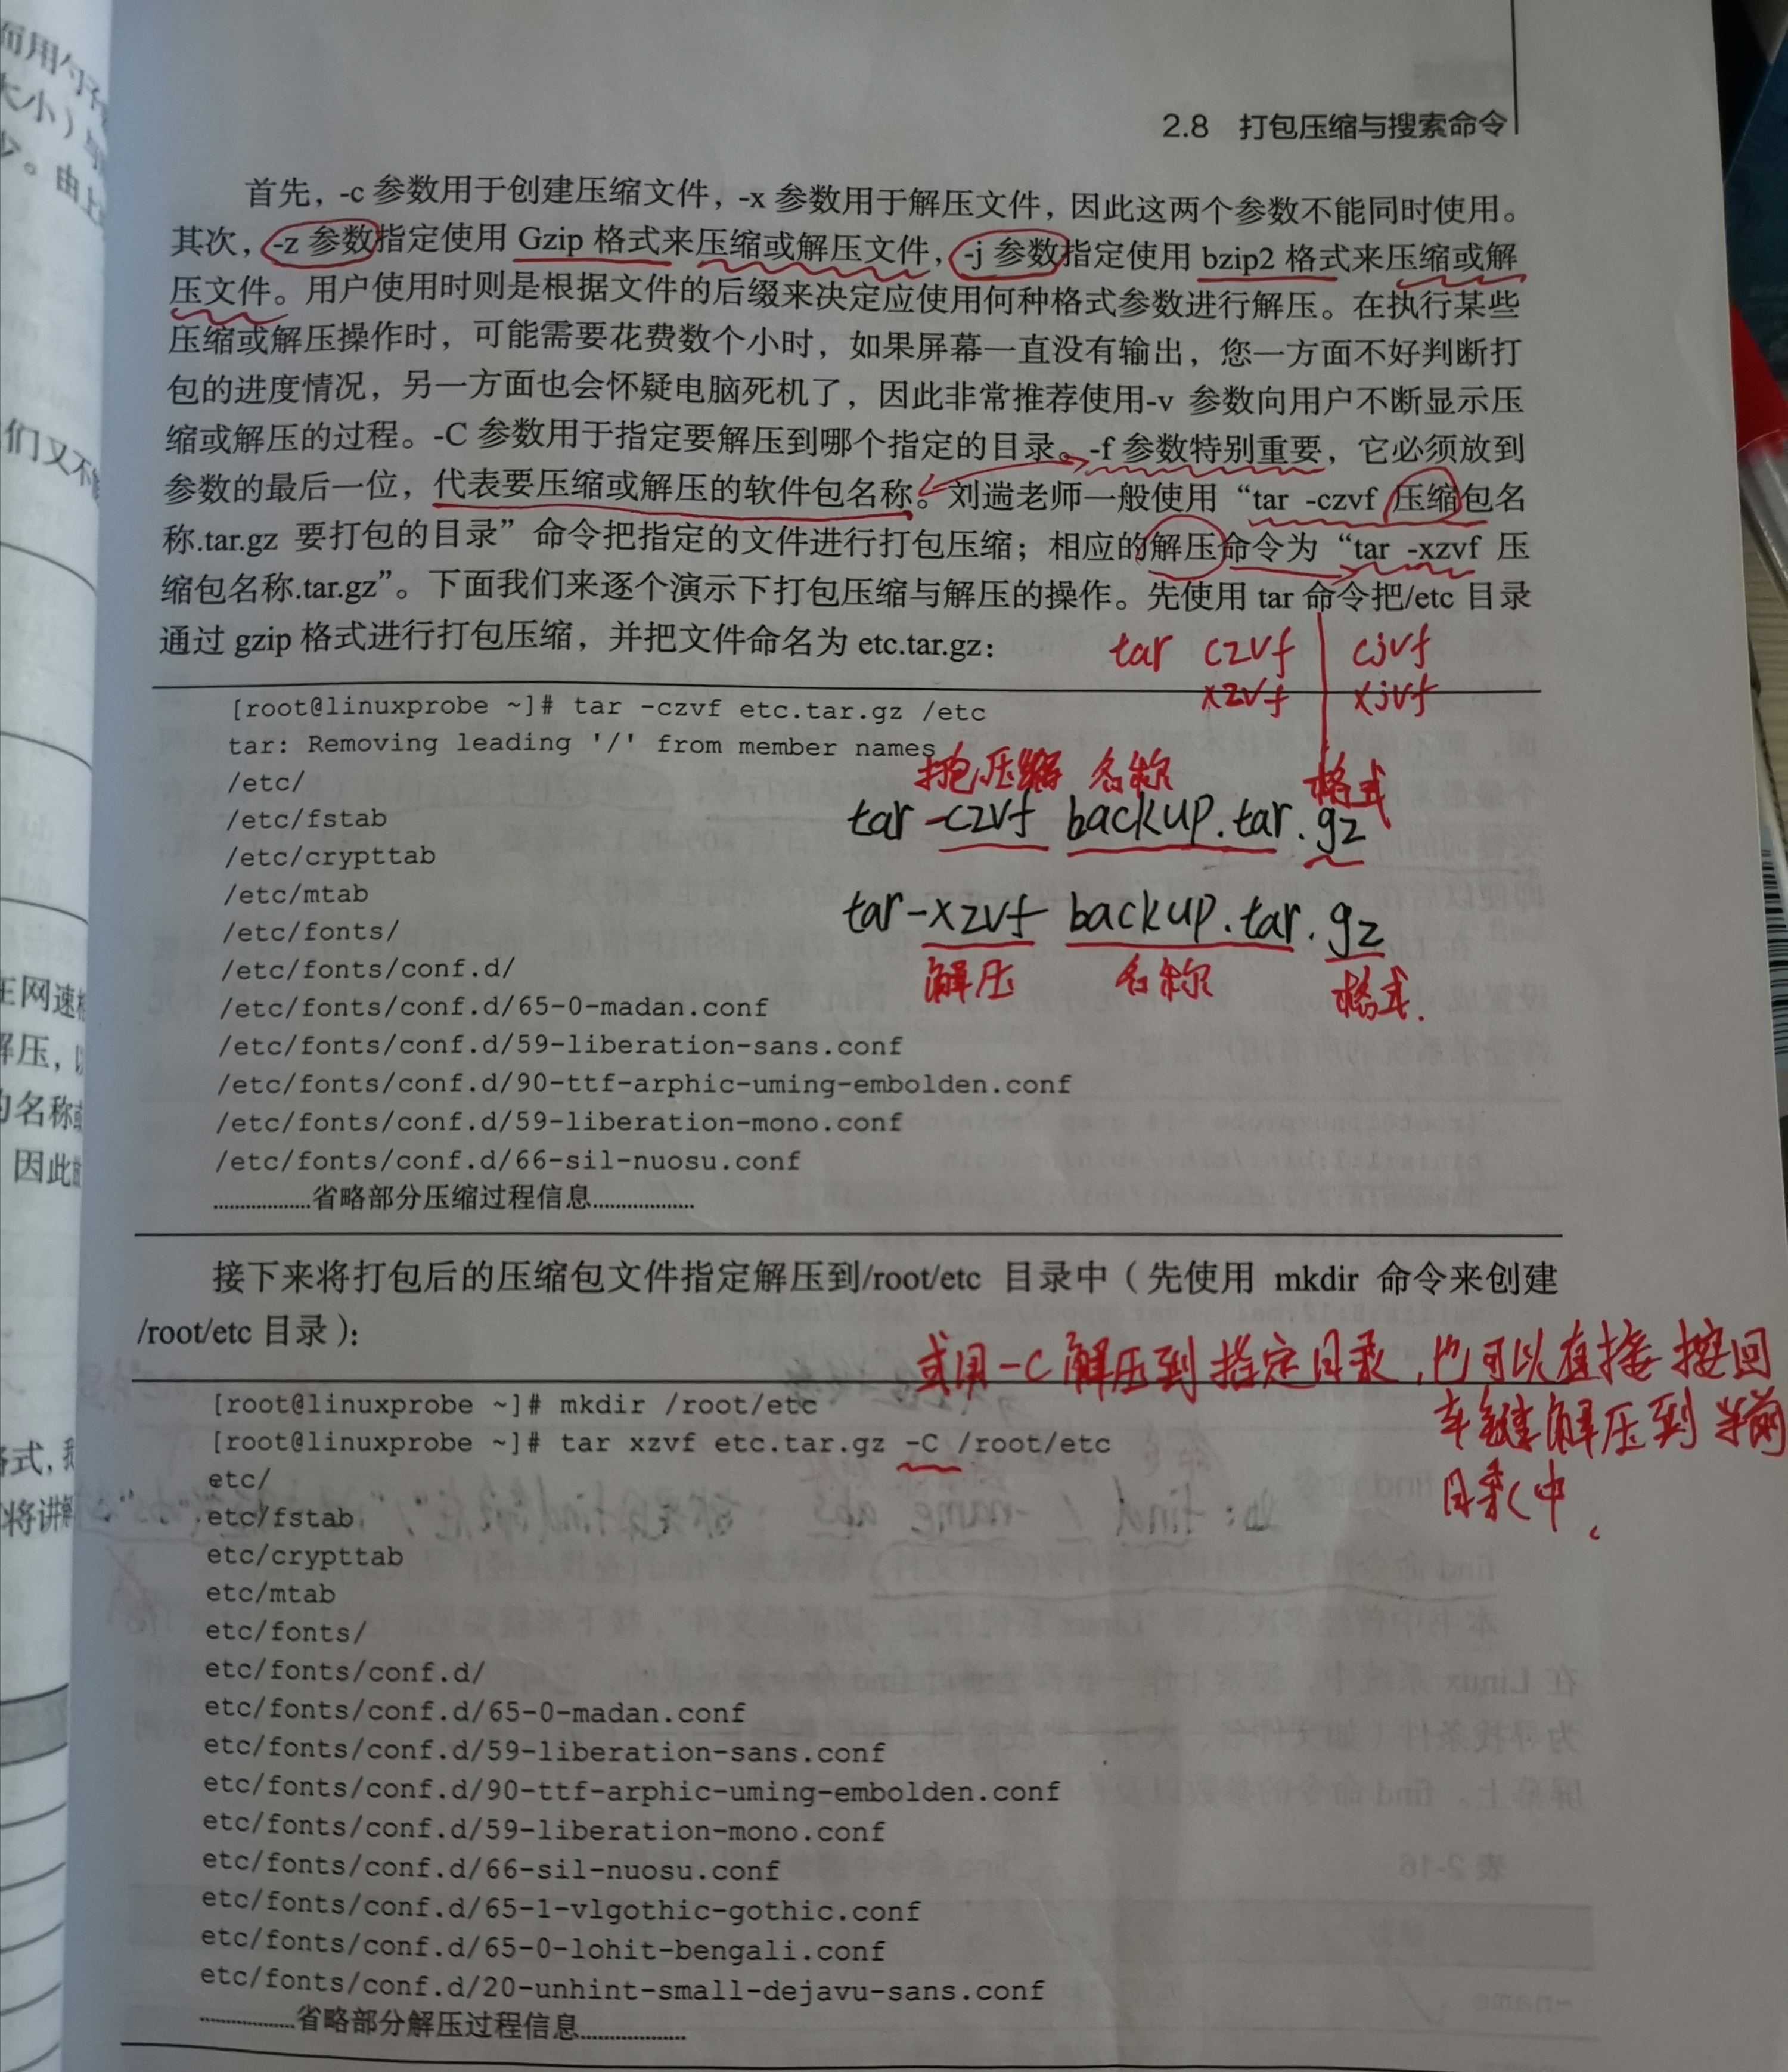 2.8 打包压缩与搜索命令
首先，-c 参数用于创建压缩文件，-x 参数用于解压文件，因此这两个参数不能同时使用。
其次，-z 参数指定使用 Gzip 格式来压缩或解压文件，-j 参数指定使用 bzip2 格式来压缩或解
压文件。用户使用时则是根据文件的后缀来决定应使用何种格式参数进行解压。在执行某些
压缩或解压操作时，可能需要花费数个小时，如果屏幕一直没有输出，您一方面不好判断打
包的进度情况，另一方面也会怀疑电脑死机了，因此非常推荐使用-v 参数向用户不断显示压
缩或解压的过程。-C 参数用于指定要解压到哪个指定的目录。-f 参数特别重要，它必须放到
参数的最后一位，代表要压缩或解压的软件包名称。刘遄老师一般使用“tar -czvf 压缩包名
称.tar.gz 要打包的目录”命令把指定的文件进行打包压缩；相应的解压命令为“tar -xzvf 压
缩包名称.tar.gz”。下面我们来逐个演示下打包压缩与解压的操作。先使用 tar 命令把/etc 目录
通过 gzip 格式进行打包压缩，并把文件命名为 etc.tar.gz：
tar czvf | cjvf
xzvf | xjvf
[root@linuxprobe ~]# tar -czvf etc.tar.gz /etc
tar: Removing leading '/' from member names
/etc/
/etc/fstab
/etc/crypttab
/etc/mtab
/etc/fonts/
/etc/fonts/conf.d/
/etc/fonts/conf.d/65-0-madan.conf
/etc/fonts/conf.d/59-liberation-sans.conf
/etc/fonts/conf.d/90-ttf-arphic-uming-embolden.conf
/etc/fonts/conf.d/59-liberation-mono.conf
/etc/fonts/conf.d/66-sil-nuosu.conf
………………省略部分压缩过程信息………………
打包压缩 名称 格式
tar -czvf backup.tar.gz
tar -xzvf backup.tar.gz
解压 名称 格式.
接下来将打包后的压缩包文件指定解压到/root/etc 目录中（先使用 mkdir 命令来创建
/root/etc 目录）：
或用 -C 解压到指定目录，也可以直接按回
车键解压到当前
目录中。
[root@linuxprobe ~]# mkdir /root/etc
[root@linuxprobe ~]# tar xzvf etc.tar.gz -C /root/etc
etc/
etc/fstab
etc/crypttab
etc/mtab
etc/fonts/
etc/fonts/conf.d/
etc/fonts/conf.d/65-0-madan.conf
etc/fonts/conf.d/59-liberation-sans.conf
etc/fonts/conf.d/90-ttf-arphic-uming-embolden.conf
etc/fonts/conf.d/59-liberation-mono.conf
etc/fonts/conf.d/66-sil-nuosu.conf
etc/fonts/conf.d/65-1-vlgothic-gothic.conf
etc/fonts/conf.d/65-0-lohit-bengali.conf
etc/fonts/conf.d/20-unhint-small-dejavu-sans.conf
………………省略部分解压过程信息………………